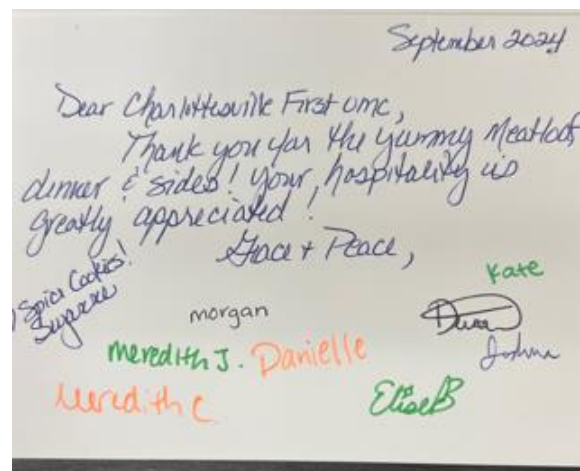 September 2024
Dear Charlottesville First umc,
Thank you for the yummy Meatloaf
dinner & sides! Your hospitality is
greatly appreciated!
Grace + Peace,
Spice Cookies!
Suzanne
Kate
morgan
Meredith J. Danielle
Joshua
Meredith C
Elise B